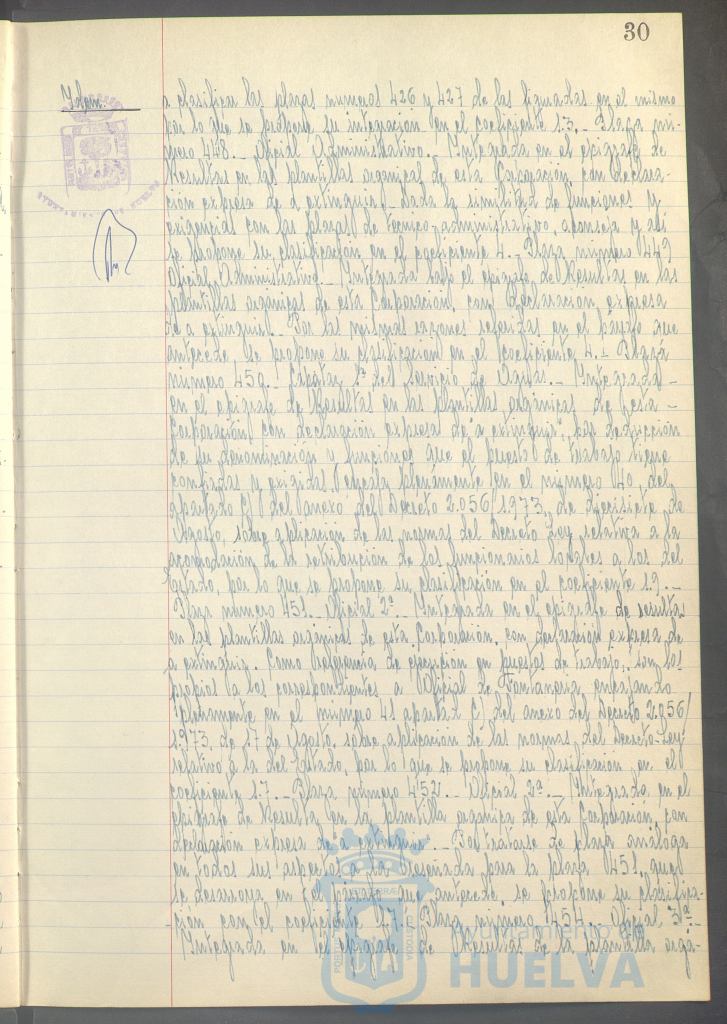 30
Idem.
a clasificar las plazas numeros 426 y 427 de las liquadas en el mismo
por lo que se propone su integracion en el coeficiente 1.3.- Plaza nú-
mero 448.- Oficial Administrativo.- Integrada en el epigrafe de
Resultas en las plantillas organicas de esta Corporación, con declara-
cion expresa de a extinguir. Dada la similitud de funciones y
exigencias con las plazas de tecnico-administrativo, aconseja y asi
se propone su clasificación en el coeficiente 4.- Plaza número 449
Oficial Administrativo.- Integrada bajo el epigrafe de Resultas en las
plantillas organicas de esta Corporación, con declaración expresa
de a extinguir.- Por las mismas razones referidas en el parrafo que
antecede se propone su clasificación en el coeficiente 4.- Plaza
número 450.- Capataz 1ª del Servicio de Aguas.- Integrada
en el epigrafe de Resultas en las plantillas organicas de esta
Corporación, con declaración expresa de "a extinguir",
de su denominación y funciones que el puesto de trabajo tiene
confiadas y exigidas encaja plenamente en el número 40, del
apartado C) del anexo del Decreto 2.056/1973, de diecisiete de
Agosto, sobre aplicación de las normas del Decreto Ley relativa a la
acomodación de la retribución de los funcionarios locales a los del
Estado, por lo que se propone su clasificación en el coeficiente 1.9.-
Plaza número 451.- Oficial 2ª.- Integrada en el epigrafe de resultas
en las plantillas organicas de esta Corporación, con declaración expresa de
a extinguir. Como referencia de ejecución en puestos de trabajo, son los
propios a los correspondientes a Oficial de Fontaneria, encajando
plenamente en el número 41 apartado C) del anexo del Decreto 2.056/
1.973, de 17 de Agosto, sobre aplicación de las normas del Decreto-Ley
relativo a la del Estado, por lo que se propone su clasificación en el
coeficiente 1.7.- Plaza número 452.- Oficial 2ª.- Integrada en el
epigrafe de Resultas en la plantilla organica de esta Corporación, con
declaración expresa de a extinguir.- Por tratarse de plaza análoga
en todos sus aspectos a la reseñada para la plaza 451, que
se desarrolla en el parrafo que antecede, se propone su clasifica-
ción con el coeficiente 1.7.- Plaza número 454.- Oficial 3ª.-
Integrada en el epigrafe de Resultas de la plantilla orga-
Ayuntamiento de
HUELVA